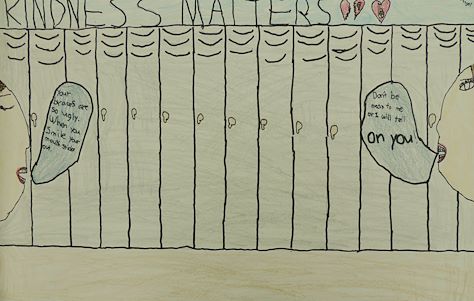 KINDNESS MATTERS!!
Your
braces are
so ugly.
When you
Smile your
out.
Don't be
mean to me
or I will tell
on you